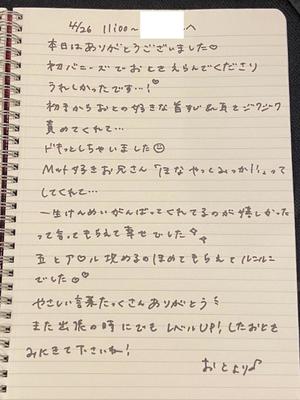 4/26 11:00~ へ
本日はありがとうございました♡
初バニーズでおとをえらんでくださり
うれしかったです…!♡
初手からおとの好きな首すじ&耳とジクジク
責めてくれて…
ドキッとしちゃいました☺
Mっ気好きお兄さん「 なやっとみっか!」って
してくれて…
一生けんめいがんばってくれてるのが嬉しかった
って言ってもらえて幸せでした
玉とア〇ル攻めるのほめてもらえてルンルン
でした
やさしい言葉たっくさんありがとう
また出張の時にでもレベルUP!したおとを
みにきて下さいね!
おとより♪